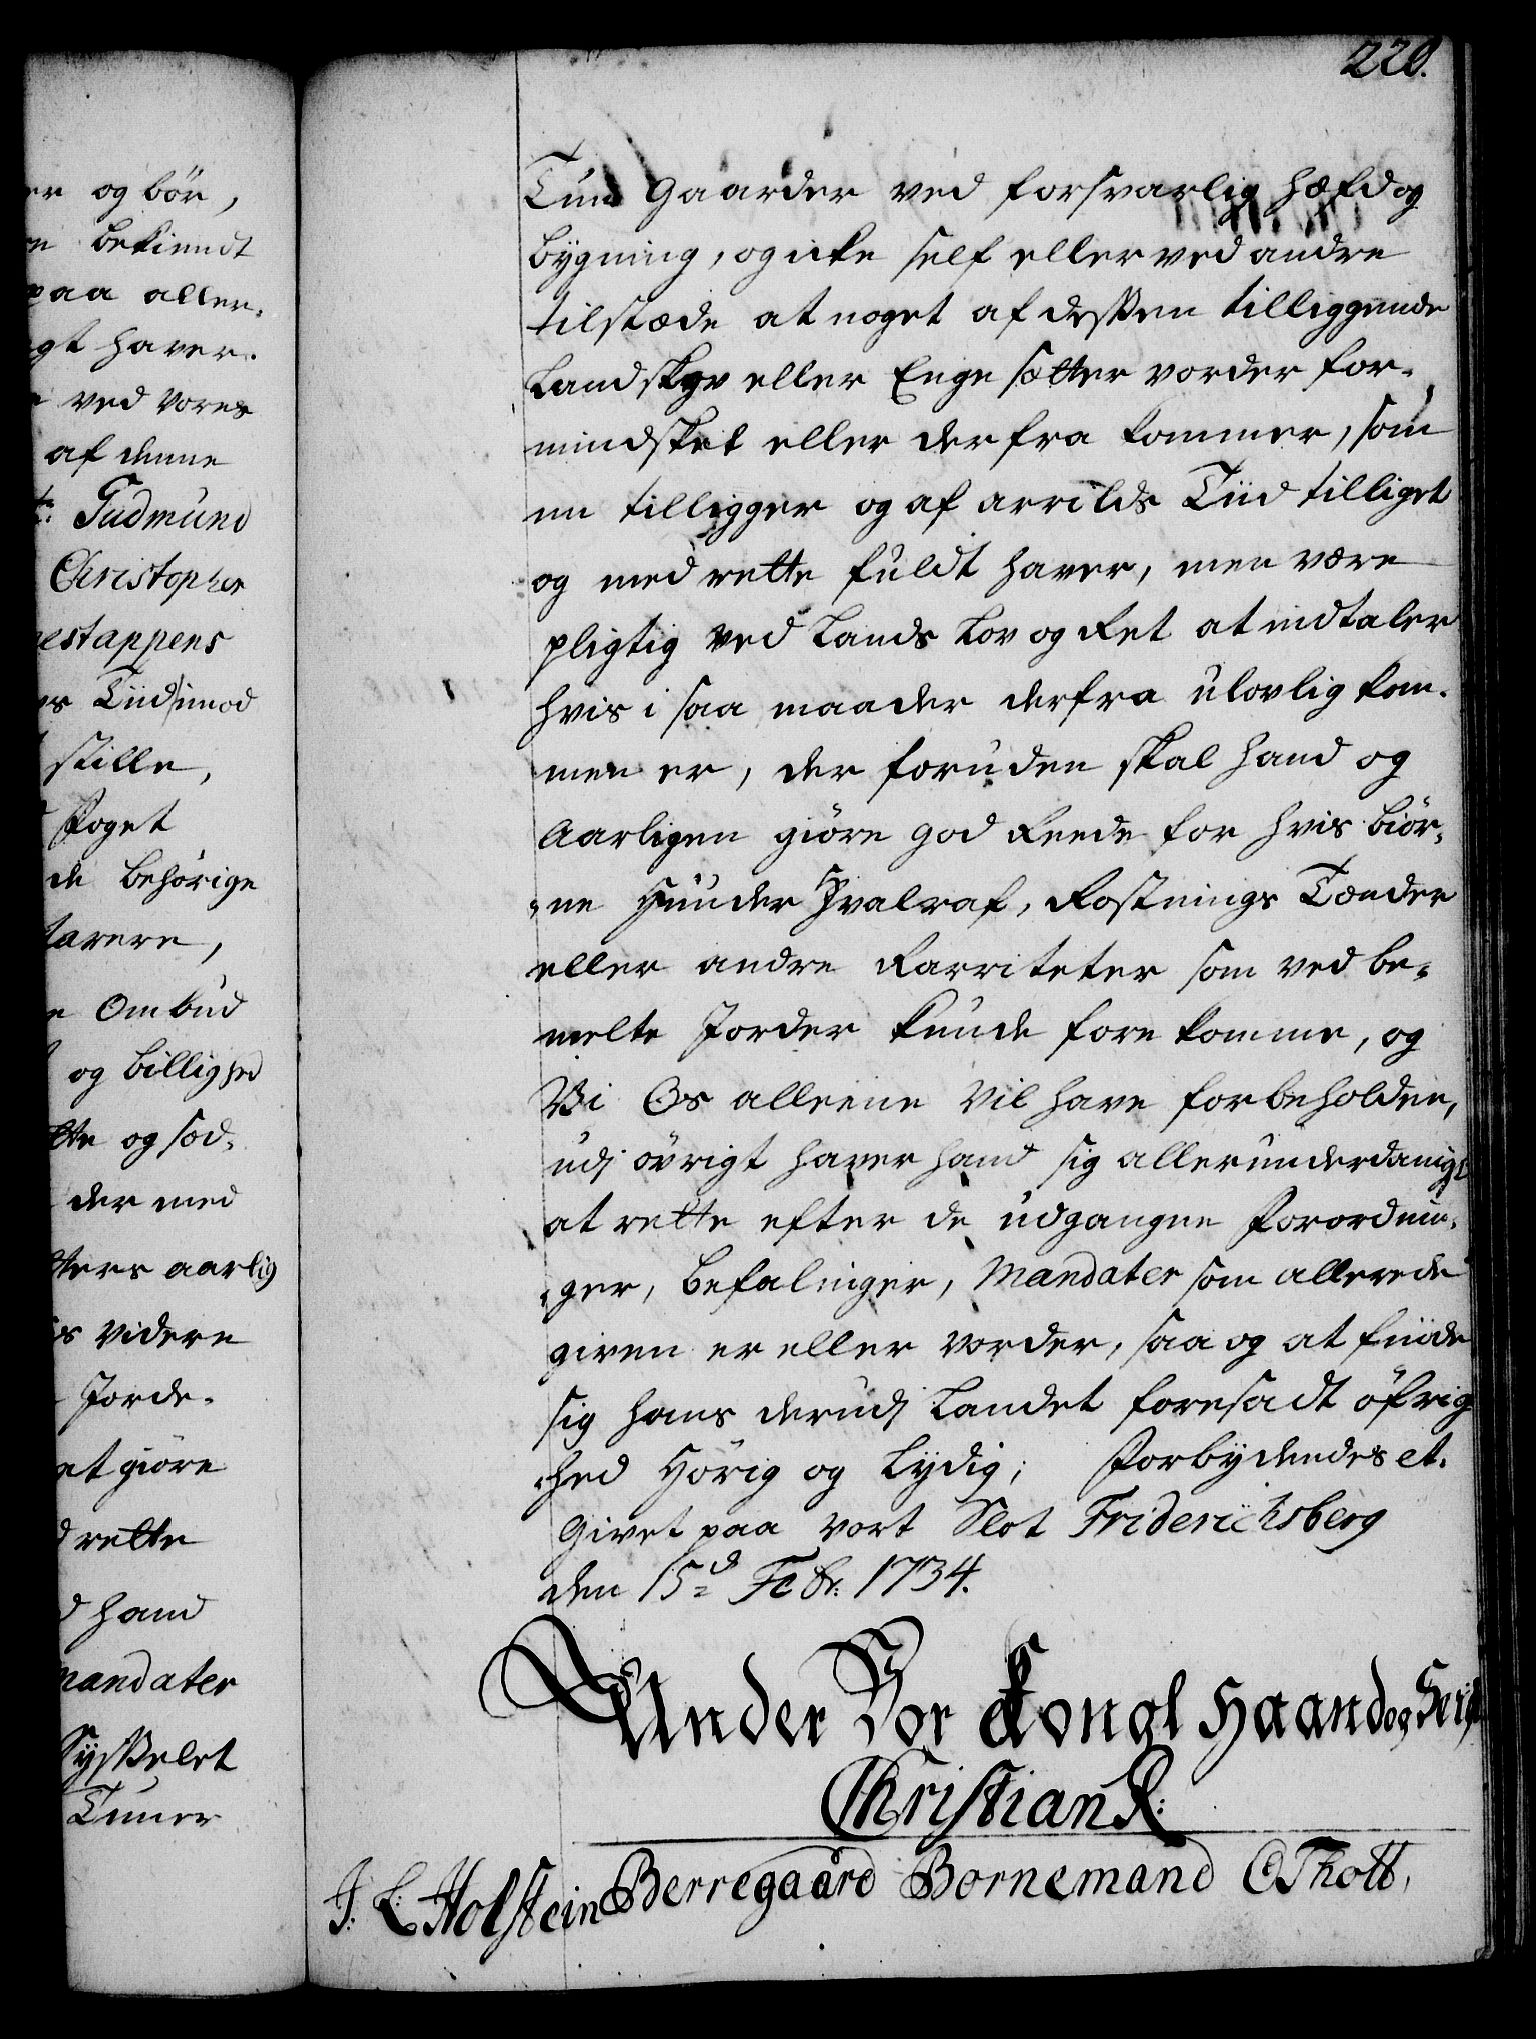 220.
er og bör,
n bekiendt
paa aller-
gt haver.
ved vores
af denne
Gudmund
Christopher
estappens
s Tiid imod
stille,
Foget
de behörige
varere,
e Ombud
og billighed
tte og sod-
der med
tters aarlig
s videre
Jorde-
at giöre
d rette
d hand
Mandater
Sysselet
Tuner
Tun Gaarder ved forsvarlig hæfd og
bygning, og icke self eller ved andre
tilstæde at noget af dessen tilliggende
Landskyr eller Enge sætter vorder for-
mindsket eller derfra kommer, som
nu tilligger og af arrilds Tiid tilliget
og med rette fuldt haver, men være
pligtig ved Lands Lov og Ret at indtaler
hvis i saa maader derfra ulovlig kom-
men er, der foruden skal hand og
Aarligen giöre god Reede for hvis biör-
-ne Huuder Hvalraf, Rostnings Tænder
eller andre Rarriteter som ved be-
melte Jorder kunde fore komme, og
Vi Os alleene vil have forbeholden,
udj övrigt haver hand sig allerunderdanigst
at rette efter de udgangne Forordnin-
-ger, befalinger, Mandater som allerede
given er eller vorder, saa og at finde
sig hans derudj Landet foresadt öfrig
-hed Hörig og Lydig; Forbydendes et.
Givet paa vort Slot Friderichsberg
den 15d Febr: 1734.
Under Vor Kongl Haand og Seigl
Christian R:
J: L: Holstein Berregaard Bornemand O Thott,